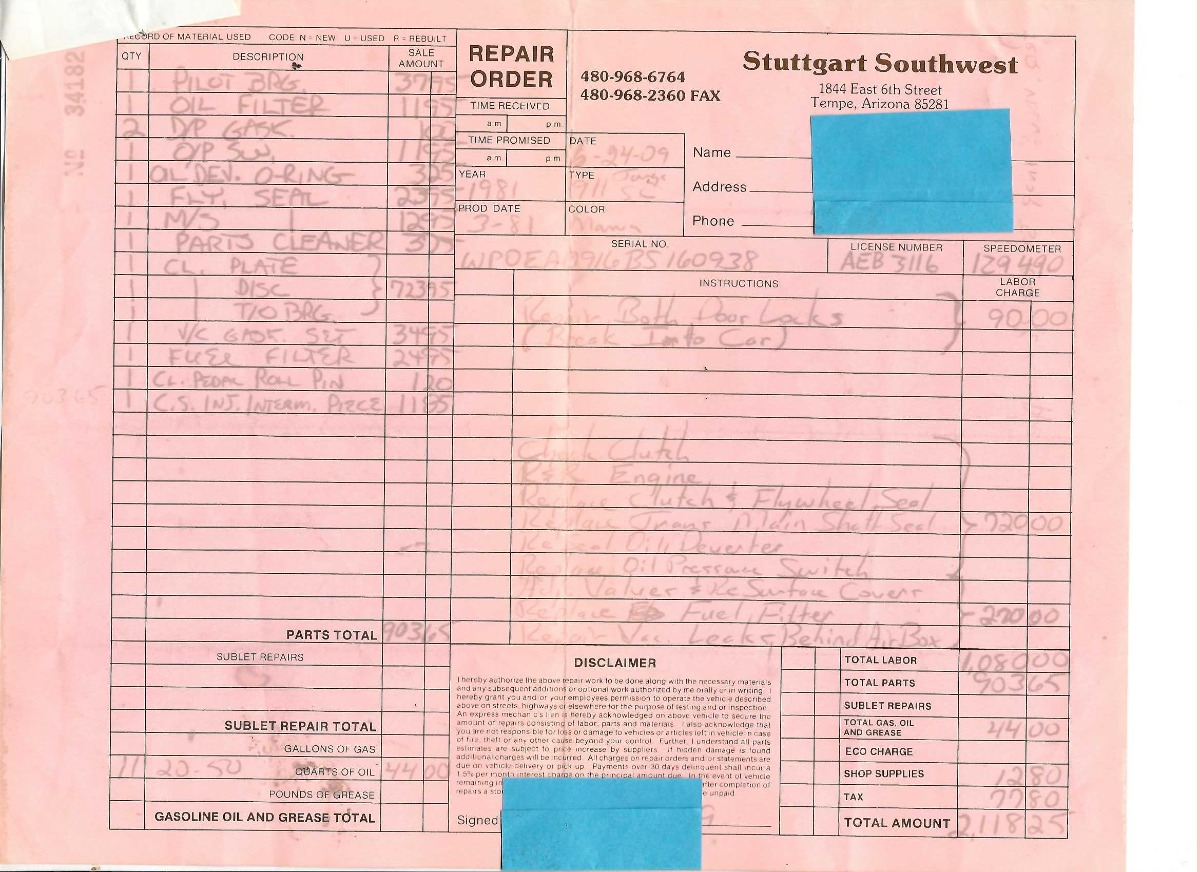 RECORD OF MATERIAL USED CODE N = NEW U = USED R = REBUILT
QTY DESCRIPTION SALE AMOUNT
1 PILOT BRG. 37 95
1 OIL FILTER 11 95
2 D/P GASK.
1 O/P SW. 11 95
1 OIL DEV. O-RING 3 95
1 FLY. SEAL 23 95
1 M/S | 12 95
1 PARTS CLEANER 3 95
1 CL. PLATE
1 | DISC 723 95
1 T/O BRG.
1 V/C GASK. SET 34 95
1 FUEL FILTER 24 95
1 CL. PEDAL ROLL PIN 1 20
1 C.S. INJ. INTERM. PIECE 11 85
PARTS TOTAL 903 65
SUBLET REPAIRS
SUBLET REPAIR TOTAL
GALLONS OF GAS
11 20-50 QUARTS OF OIL 44 00
POUNDS OF GREASE
GASOLINE OIL AND GREASE TOTAL
No 34182
90365
REPAIR ORDER
480-968-6764
480-968-2360 FAX
Stuttgart Southwest
1844 East 6th Street
Tempe, Arizona 85281
TIME RECEIVED
a.m. p.m.
TIME PROMISED
a.m. p.m.
DATE
6-24-09
YEAR
1981
TYPE
Targa
911 SC
PROD DATE
3-81
COLOR
Name
Address
Phone
SERIAL NO.
WPOEA0916BS160938
LICENSE NUMBER
AEB 3116
SPEEDOMETER
129 490
INSTRUCTIONS LABOR CHARGE
Repair Both Door Locks 90.00
(Break Into Car)
Check Clutch
R&R Engine
Replace Clutch & Flywheel Seal
Replace Trans Main Shaft Seal 720 00
Reseal Oil Deverter
Replace Oil Pressure Switch
Adj. Valves & ReSurface Covers
Replace Fuel Filter 270 00
Repair Vac. Leaks Behind Air Box
DISCLAIMER
I hereby authorize the above repair work to be done along with the necessary materials
and any subsequent additions or optional work authorized by me orally or in writing. I
hereby grant you and/or your employees permission to operate the vehicle described
above on streets, highways or elsewhere for the purpose of testing and/or inspection.
An express mechanics lien is hereby acknowledged on above vehicle to secure the
amount of repairs consisting of labor, parts and materials. I also acknowledge that
you are not responsible for loss or damage to vehicles or articles left in vehicle in case
of fire, theft or any other cause beyond your control. Further, I understand all parts
estimates are subject to price increase by suppliers. If hidden damage is found
additional charges will be incurred. All charges on repair orders and/or statements are
due on vehicle delivery or pick up. Payments over 30 days delinquent shall incur a
1.5% per month interest charge on the principal amount due. In the event of vehicle
remaining in after completion of
repairs a unpaid.
Signed
TOTAL LABOR 1,080 00
TOTAL PARTS 903 65
SUBLET REPAIRS
TOTAL GAS, OIL AND GREASE 44 00
ECO CHARGE
SHOP SUPPLIES 12 80
TAX 77 80
TOTAL AMOUNT 2,118 25